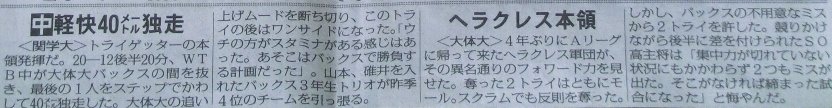 中軽快40メートル独走
<関学大>トライゲッターの本
領発揮だ。20―12後半20分、WT
B中が大体大バックスの間を抜
き、最後の1人をステップでかわ
して40㍍独走した。大体大の追い
上げムードを断ち切り、このトラ
イの後はワンサイドになった。「ウ
チの方がスタミナがある感じはあ
った。あそこはバックスで勝負す
る計画だった」。山本、碓井を入
れたバックス3年生トリオが昨季
4位のチームを引っ張る。
ヘラクレス本領
<大体大>4年ぶりにAリーグ
に帰って来たヘラクレス軍団が、
その異名通りのフォワード力を見
せた。奪った2トライはともにモ
ール。スクラムでも反則を奪った。
しかし、バックスの不用意なミス
から2トライを許した。競りかけ
ながら後半に差を付けられたSO
高主将は「集中力が切れていない
状況にもかかわらず2つもミスが
出た。そこがなければ締まった試
合になった」と悔やんだ。